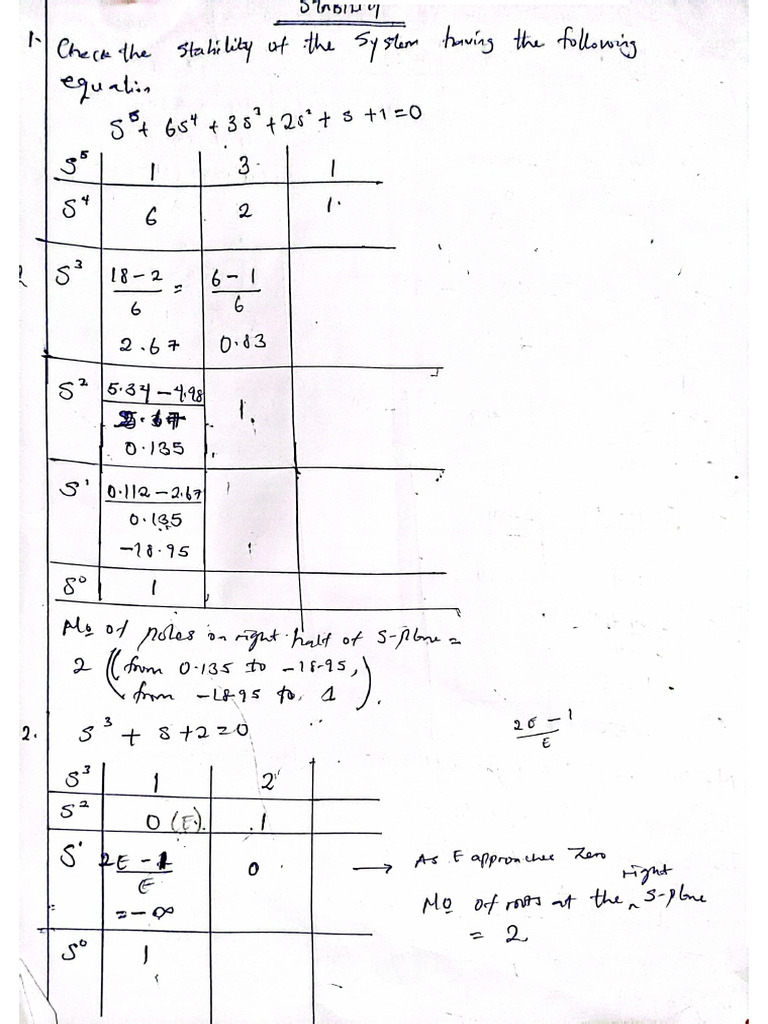 Stability
1. Check the stability of the system having the following
equation
S⁵ + 6s⁴ + 3s³ + 2s² + s + 1 = 0
S⁵ 1 3 1
S⁴ 6 2 1.
S³ 18-2/6 = 6-1/6
2.67 0.83
S² 5.34-4.98/2.67 1.
0.135
S¹ 0.112-2.67/0.135
-18.95
S⁰ 1
No of poles on right half of s-plane =
2 (from 0.135 to -18.95,
from -18.95 to 1).
2. s³ + s + 2 = 0
2ε-1/ε
S³ 1 2
S² 0(ε). 1
S¹ 2ε-1/ε 0 → As ε approaches zero
= -∞ No of roots at the right s-plane
= 2
S⁰ 1